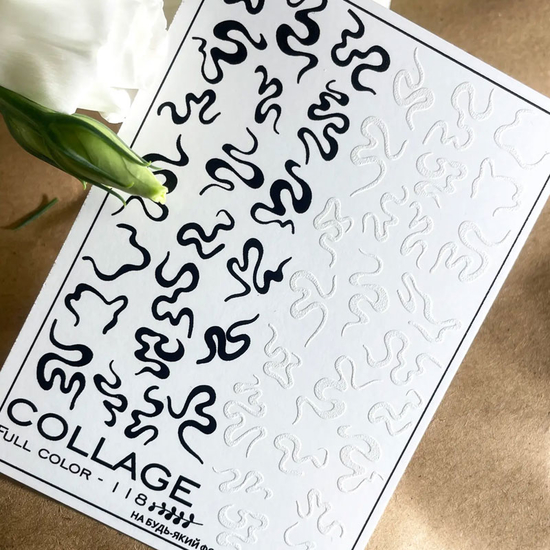 COLLAGE
FULL COLOR - 118
НА БУДЬ-ЯКИЙ